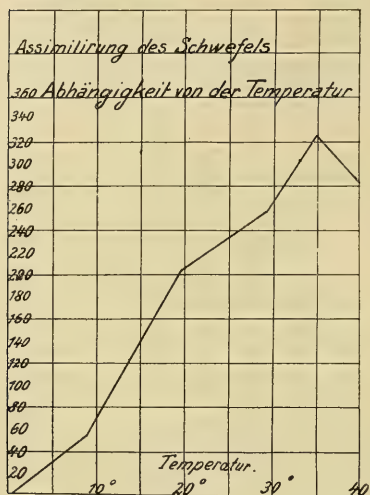 Assimilirung des Schwefels
360 Abhängigkeit von der Temperatur
340
320
300
280
260
240
220
200
180
160
140
120
100
80
60
40
20
Temperatur.
10° 20° 30° 40